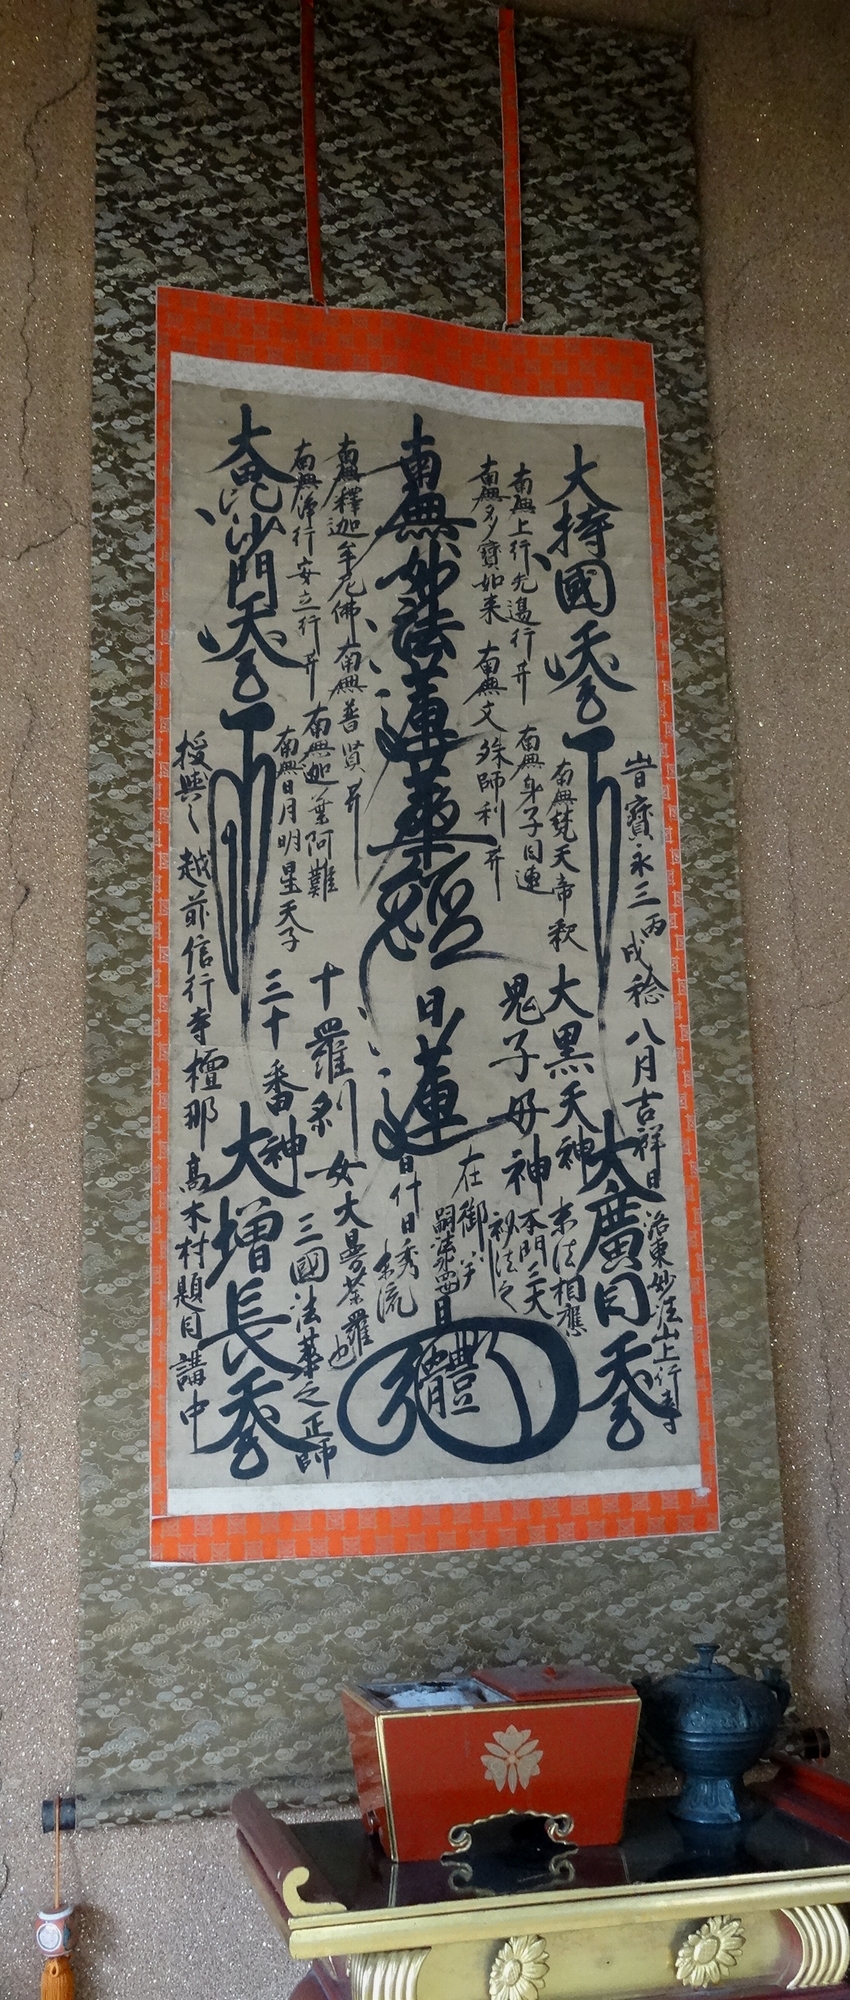 大持國天王
大廣目天王
旹寶永三丙戌稔八月吉祥日
洛東妙
山上行寺
南無上行无邊行菩
南無多寶如来
南無文殊師利菩
南無身子目連
南無梵天帝釈
大黒天神
鬼子母神
末法相應
本門三
秘法之
南無妙法蓮華經
日蓮
在御判
嗣法
日體
日什日秀
流
南無釋迦牟尼佛
南無普賢菩
南無淨行安立行菩
南無迦葉阿難
南無日月明星天子
十羅刹女
三十番神
大曼荼羅也
三國法華之正師
大毘沙門天王
大増長天王
授與之
越前信行寺檀那高木村題目講中